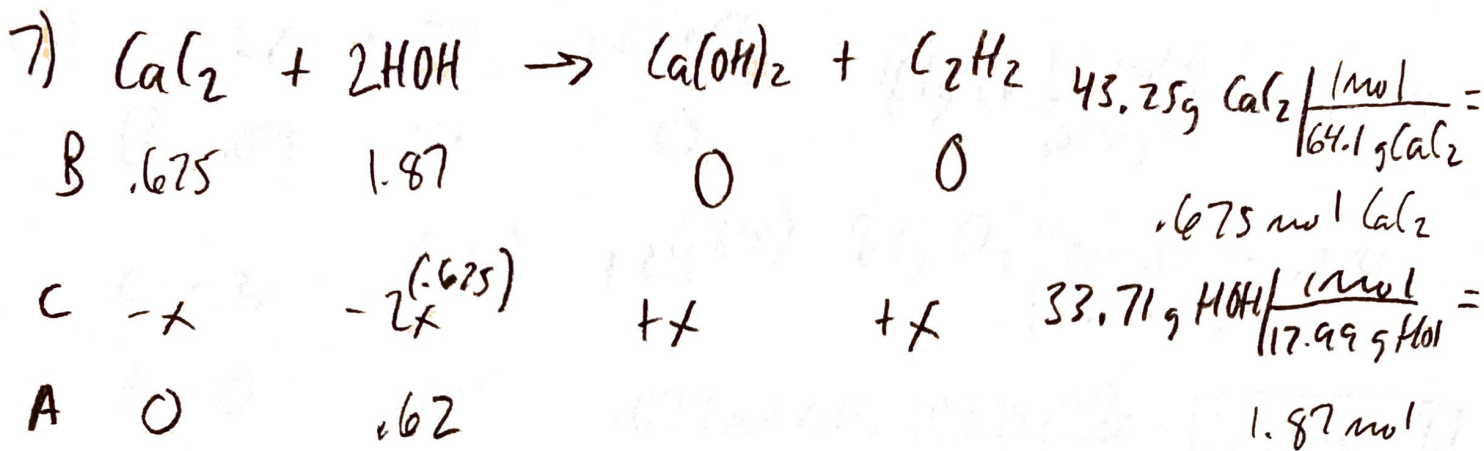 7) CaC2 + 2HOH → Ca(OH)2 + C2H2
B .675 1.87 0 0
C -x -2x(.675) +x +x
A 0 .62
43.25g CaC2 | 1mol / 64.1 gCaC2 =
.675 mol CaC2
33.71g HOH | 1mol / 17.99 g HOH =
1.87 mol